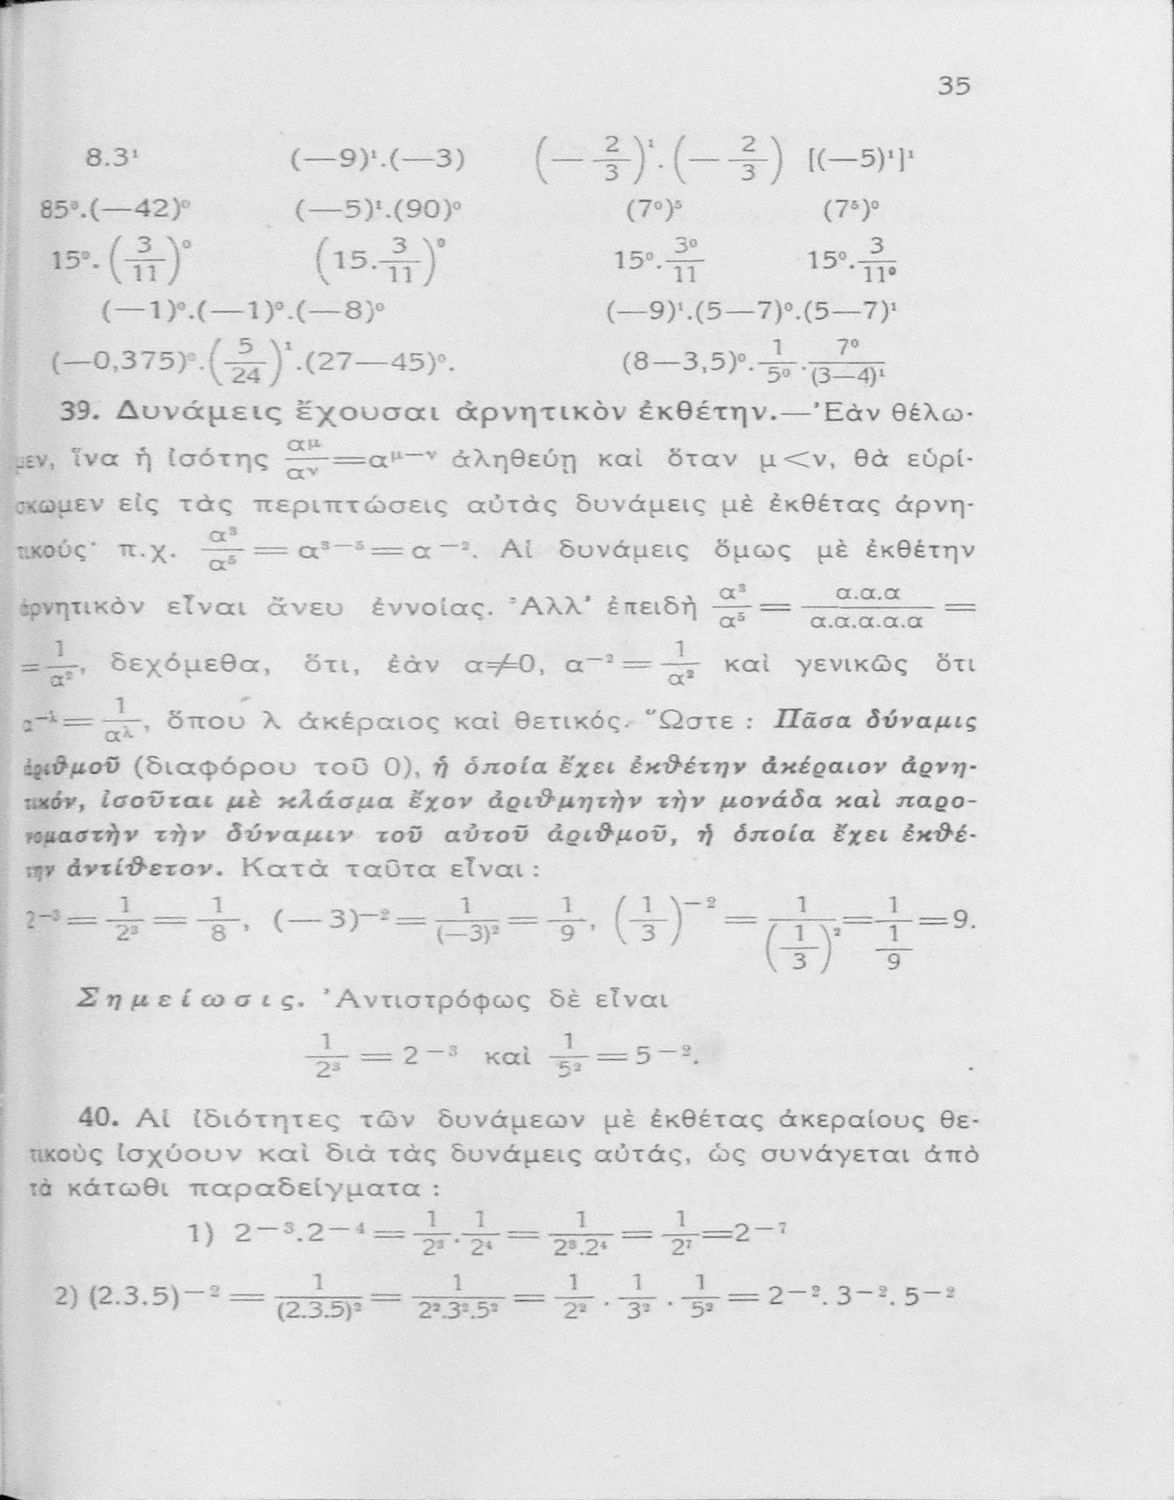 35
8.3¹ (—9)¹.(—3) (— 2/3)¹.(— 2/3) [(—5)¹]¹
85⁰.(—42)⁰ (—5)¹.(90)⁰ (7⁰)⁵ (7⁵)⁰
15⁰.(3/11)⁰ (15.3/11)⁰ 15⁰.3⁰/11 15⁰.3/11⁰
(—1)⁰.(—1)⁰.(—8)⁰ (—9)¹.(5—7)⁰.(5—7)¹
(—0,375)⁰.(5/24)¹.(27—45)⁰. (8—3,5)⁰.1/5⁰.7⁰/(3—4)¹
39. Δυνάμεις ἔχουσαι ἀρνητικὸν ἐκθέτην.—Ἐὰν θέλω-
μεν, ἵνα ἡ ἰσότης αᵘ/αᵛ=αᵘ⁻ᵛ ἀληθεύῃ καὶ ὅταν μ<ν, θὰ εὑρί-
σκωμεν εἰς τὰς περιπτώσεις αὐτὰς δυνάμεις μὲ ἐκθέτας ἀρνη-
τικούς· π.χ. α³/α⁵ = α³⁻⁵ = α⁻². Αἱ δυνάμεις ὅμως μὲ ἐκθέτην
ἀρνητικὸν εἶναι ἄνευ ἐννοίας. Ἀλλ' ἐπειδὴ α³/α⁵ = α.α.α/α.α.α.α.α =
= 1/α², δεχόμεθα, ὅτι, ἐὰν α≠0, α⁻² = 1/α² καὶ γενικῶς ὅτι
α^—λ = 1/α^λ, ὅπου λ ἀκέραιος καὶ θετικός. Ὥστε : Πᾶσα δύναμις
ἀριθμοῦ (διαφόρου τοῦ 0), ἡ ὁποία ἔχει ἐκθέτην ἀκέραιον ἀρνη-
τικόν, ἰσοῦται μὲ κλάσμα ἔχον ἀριθμητὴν τὴν μονάδα καὶ παρο-
νομαστὴν τὴν δύναμιν τοῦ αὐτοῦ ἀριθμοῦ, ἡ ὁποία ἔχει ἐκθέ-
την ἀντίθετον. Κατὰ ταῦτα εἶναι :
2⁻³ = 1/2³ = 1/8, (—3)⁻² = 1/(—3)² = 1/9, (1/3)⁻² = 1/(1/3)² = 1/(1/9) = 9.
Σημείωσις. Ἀντιστρόφως δὲ εἶναι
1/2³ = 2⁻³ καὶ 1/5² = 5⁻².
40. Αἱ ἰδιότητες τῶν δυνάμεων μὲ ἐκθέτας ἀκεραίους θε-
τικοὺς ἰσχύουν καὶ διὰ τὰς δυνάμεις αὐτάς, ὡς συνάγεται ἀπὸ
τὰ κάτωθι παραδείγματα :
1) 2⁻³.2⁻⁴ = 1/2³.1/2⁴ = 1/2³.2⁴ = 1/2⁷ = 2⁻⁷
2) (2.3.5)⁻² = 1/(2.3.5)² = 1/2².3².5² = 1/2².1/3².1/5² = 2⁻².3⁻².5⁻²